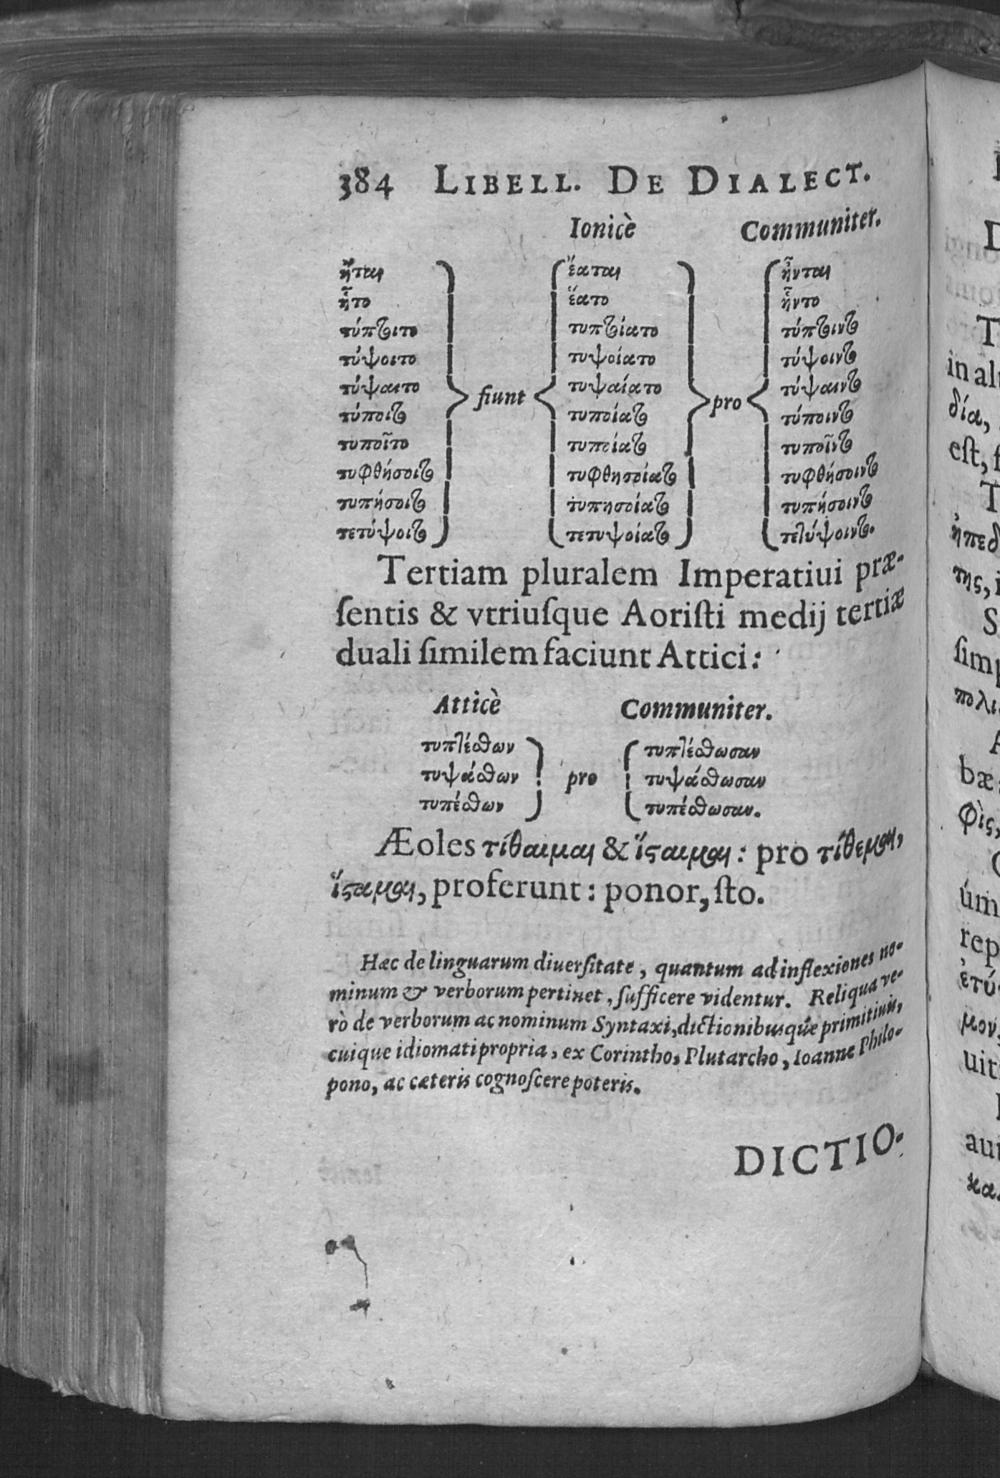 384 LIBELL. DE DIALECT.
Ionicè Communiter.
ἧται ἕαται ἧνται
ἧτο ἕατο ἧντο
τύπτοιτο τυπτοίατο τύπτοιντο
τύψοιτο τυψοίατο τύψοιντο
τύψαιτο fiunt τυψαίατο pro τύψαιντο
τύποιτο τυποίατο τύποιντο
τυποῖτο τυποίατο τυποῖντο
τυφθήσοιτο τυφθησοίατο τυφθήσοιντο
τυπήσοιτο τυπησοίατο τυπήσοιντο
τετύψοιτο τετυψοίατο τετύψοιντο.
Tertiam pluralem Imperatiui præ-
ſentis & vtriuſque Aoriſti medij tertiæ
duali ſimilem faciunt Attici:
Atticè Communiter.
τυπτέσθων τυπτέσθωσαν
τυψάσθων pro τυψάσθωσαν
τυπέσθων τυπέσθωσαν.
Æoles τίθαιμαι & ἵσταιμαι: pro τίθεμαι,
ἵσταμαι, proferunt: ponor, ſto.
Hæc de linguarum diuerſitate, quantum ad inflexiones no-
minum & verborum pertinet, ſufficere videntur. Reliqua ve-
rò de verborum ac nominum Syntaxi, dictionibusque primitiuis,
cuique idiomati propria, ex Corintho, Plutarcho, Ioanne Philo-
pono, ac cæteris cognoſcere poteris.
DICTIO-